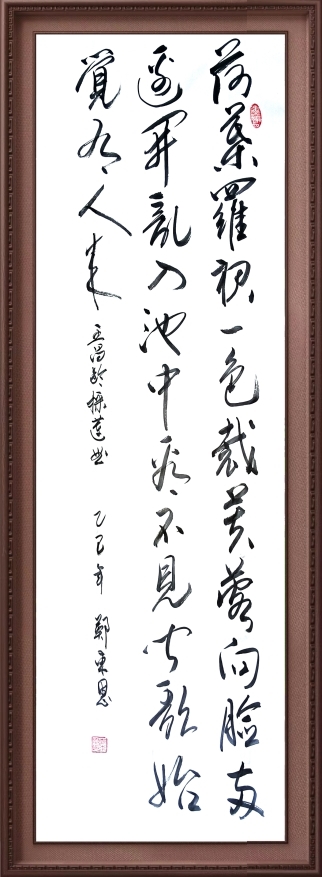 荷葉羅裙一色裁芙蓉向臉两
邊開亂入池中看不見闻歌始
覺有人來
王昌齡採蓮曲 乙巳年 鄭東恩